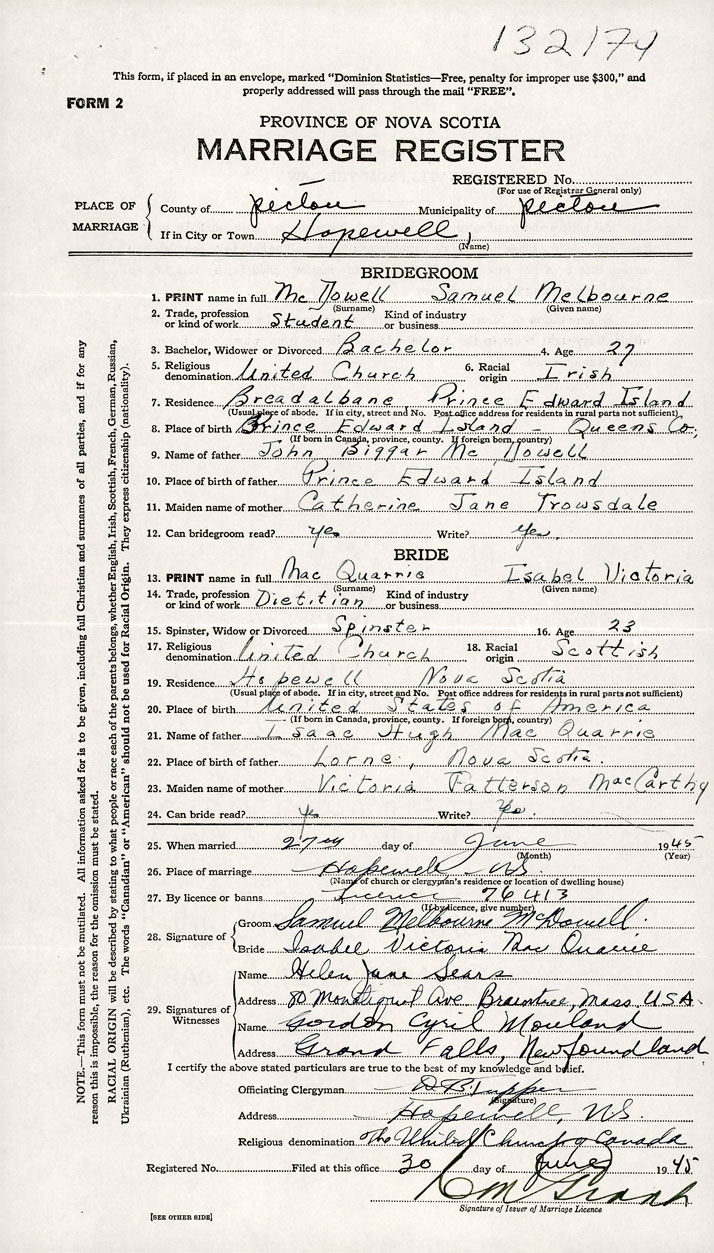 132179
This form, if placed in an envelope, marked "Dominion Statistics—Free, penalty for improper use $300," and
properly addressed will pass through the mail "FREE".
FORM 2
PROVINCE OF NOVA SCOTIA
MARRIAGE REGISTER
REGISTERED No.
(For use of Registrar General only)
PLACE OF MARRIAGE
County of Pictou Municipality of Pictou
If in City or Town Hopewell,
(Name)
BRIDEGROOM
1. PRINT name in full Mc Dowell Samuel Melbourne
(Surname) (Given name)
2. Trade, profession or kind of work Student Kind of industry or business
3. Bachelor, Widower or Divorced Bachelor 4. Age 27
5. Religious denomination United Church 6. Racial origin Irish
7. Residence Breadalbane, Prince Edward Island
(Usual place of abode. If in city, street and No. Post office address for residents in rural parts not sufficient)
8. Place of birth Prince Edward Island - Queens Co,
(If born in Canada, province, county. If foreign born, country)
9. Name of father John Biggar Mc Dowell
10. Place of birth of father Prince Edward Island
11. Maiden name of mother Catherine Jane Trowsdale
12. Can bridegroom read? yes Write? yes.
BRIDE
13. PRINT name in full Mac Quarrie Isabel Victoria
(Surname) (Given name)
14. Trade, profession or kind of work Dietitian Kind of industry or business
15. Spinster, Widow or Divorced Spinster 16. Age 23
17. Religious denomination United Church 18. Racial origin Scottish
19. Residence Hopewell Nova Scotia
(Usual place of abode. If in city, street and No. Post office address for residents in rural parts not sufficient)
20. Place of birth United States of America
(If born in Canada, province, county. If foreign born, country)
21. Name of father Isaac Hugh Mac Quarrie
22. Place of birth of father Lorne, Nova Scotia.
23. Maiden name of mother Victoria Patterson MacCarthy
24. Can bride read? yes Write? Yes.
25. When married 27 day of June 1945
(Month) (Year)
26. Place of marriage Hopewell NS.
(Name of church or clergyman's residence or location of dwelling house)
27. By licence or banns Licence 76413
(If by licence, give number)
28. Signature of
Groom Samuel Melbourne McDowell.
Bride Isabel Victoria Mac Quarrie
29. Signatures of Witnesses
Name Helen Jane Sears
Address 80 Ave. Braintree, Mass. USA.
Name Gordon Cyril Mouland
Address Grand Falls, Newfoundland
I certify the above stated particulars are true to the best of my knowledge and belief.
Officiating Clergyman D.B. Tupper
(Signature)
Address Hopewell, NS.
Religious denomination The United Church of Canada
Registered No. Filed at this office 30 day of June 1945
Grant
Signature of Issuer of Marriage Licence
[SEE OTHER SIDE]
NOTE.—This form must not be mutilated. All information asked for is to be given, including full Christian and surnames of all parties, and if for any
reason this is impossible, the reason for the omission must be stated.
RACIAL ORIGIN will be described by stating to what people or race each of the parents belongs, whether English, Irish, Scottish, French, German, Russian,
Ukrainian (Ruthenian), etc. The words "Canadian" or "American" should not be used for Racial Origin. They express citizenship (nationality).